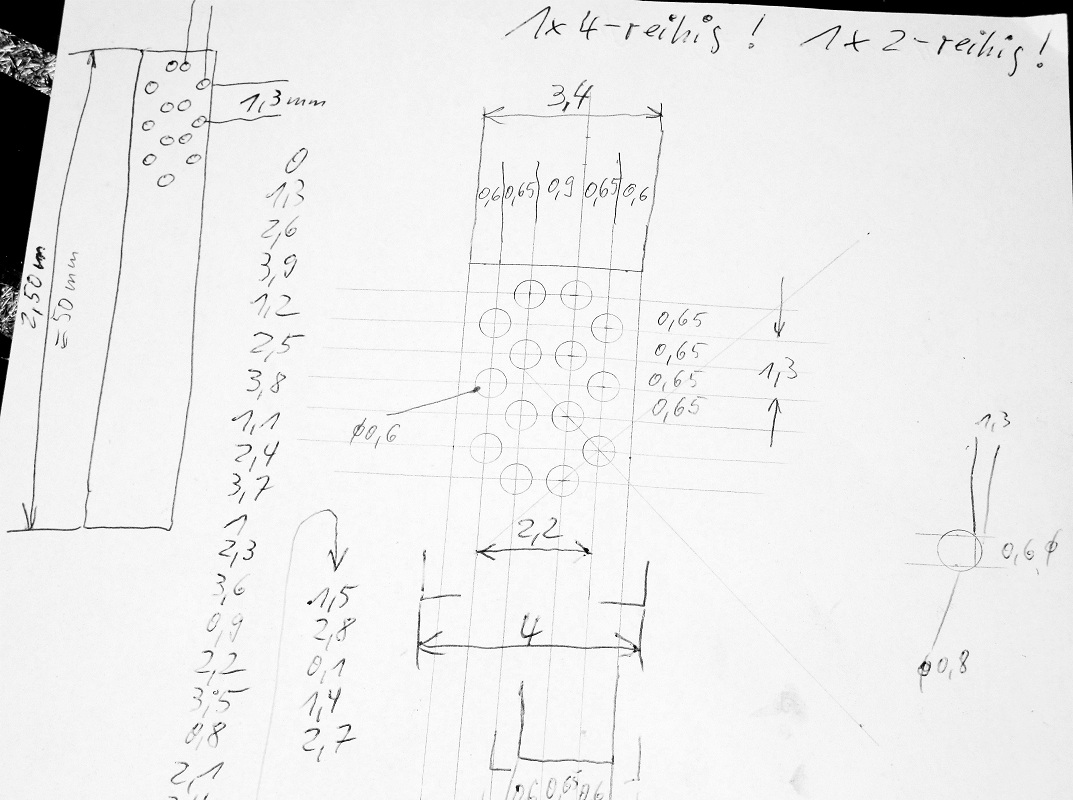 1x 4-reihig! 1x 2-reihig!
3,4
1,3mm
0,6 0,65 0,9 0,65 0,6
2,50m
= 50mm
0
1,3
2,6
3,9
1,2
2,5
3,8
1,1
2,4
3,7
1
2,3
3,6
0,9
2,2
3,5
0,8
2,1
1,5
2,8
0,1
1,4
2,7
0,65
0,65
0,65
0,65
1,3
ϕ0,6
2,2
4
0,6 0,65 0,6
1,3
0,6 ϕ
ϕ0,8